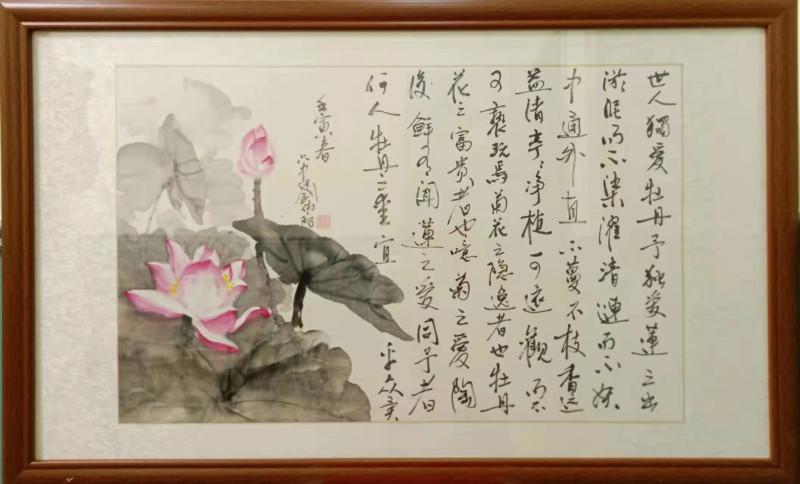 世人獨爱牡丹予独爱蓮之出
淤泥而不染濯清漣而不妖
中通外直不蔓不枝香远
益清亭々净植可遠觀而不
可褻玩焉菊花之隐逸者也牡丹
花之富贵者也噫菊之愛陶
後鮮有闻蓮之爱同予者
何人牡丹之爱宜
乎众矣
壬寅春